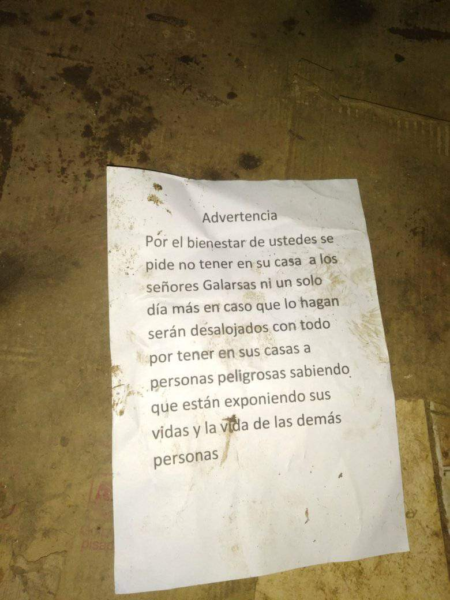 Advertencia
Por el bienestar de ustedes se
pide no tener en su casa a los
señores Galarsas ni un solo
día más en caso que lo hagan
serán desalojados con todo
por tener en sus casas a
personas peligrosas sabiendo
que están exponiendo sus
vidas y la vida de las demás
personas